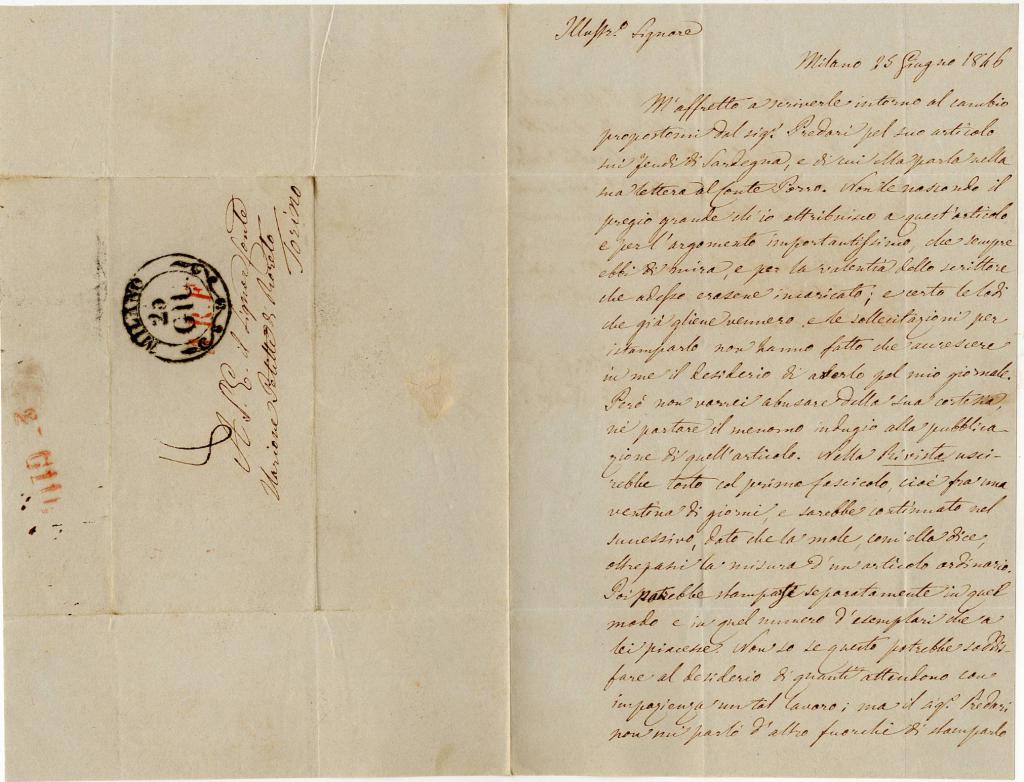 MILANO
25
GIU.
A S. E. il signor Conte
Torino
Illustr.o Signore
Milano 25 Giugno 1846
M'affretto a scriverle intorno al cambio
propostomi dal sig.r Predari pel suo articolo
sui feudi di Sardegna, e di cui ella parla nella
sua lettera al Conte Porro. Non le nascondo il
pregio grande ch'io attribuisco a quest'articolo
e per l'argomento importantissimo, che sempre
ebbi di mira, e per la valentia dello scrittore
che adesso erasene incaricato; e certo le lodi
che già gliene vennero, e le sollecitazioni per
istamparlo non hanno fatto che accrescere
in me il desiderio di averlo pel mio giornale.
Però non vorrei abusare della sua cortesia,
nè portare il menomo indugio alla pubblica-
zione di quell'articolo. Nella Rivista usci-
rebbe tosto col primo fascicolo, cioè fra una
ventina di giorni, e sarebbe continuato nel
successivo, dato che la mole, com'ella dice,
oltrepassi la misura d'un articolo ordinario.
Poi potrebbe stamparsi separatamente in quel
modo e in quel numero d'esemplari che a
lei piacesse. Non so se questo potrebbe soddis-
fare al desiderio di quanti attendono con
impazienza un tal lavoro; ma il sig.r Predari
non mi parlò d'altro fuorchè di stamparlo